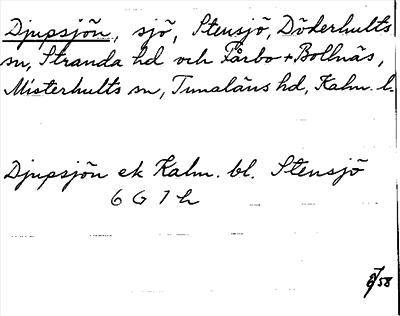 Djupsjön, sjö, Stensjö, Döderhults
sn, Stranda hd och Fårbo + Bollnäs,
Misterhults sn, Tunaläns hd, Kalm. l.
Djupsjön ek Kalm. bl. Stensjö
6 G 1 h